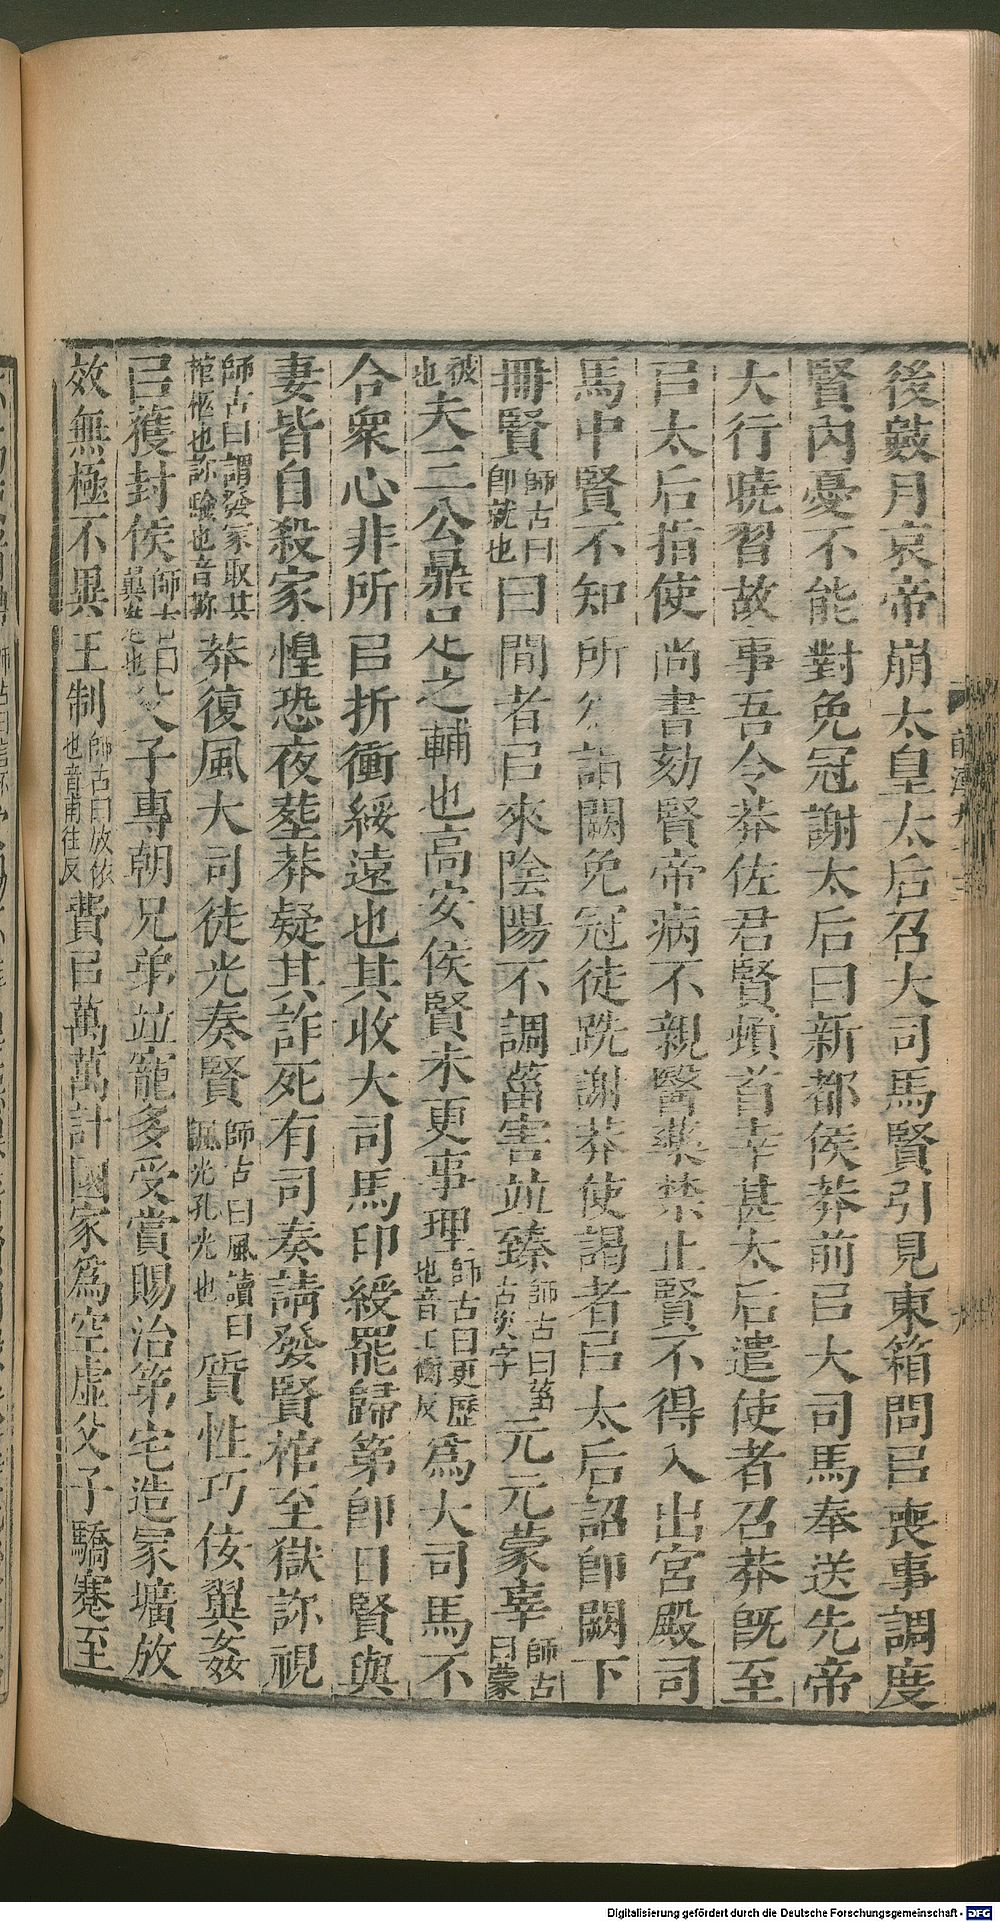 後數月哀帝崩太皇太后召大司馬賢引見東箱問㠯喪事調度
賢內憂不能對免冠謝太后曰新都侯莽前㠯大司馬奉送先帝
大行曉習故事吾令莽佐君賢頓首幸甚太后遣使者召莽既至
㠯太后指使尚書劾賢帝病不親醫藥禁止賢不得入出宮殿司
馬中賢不知所 詣闕免冠徒跣謝莽使謁者㠯太后詔即闕下
冊賢師古曰即就也曰閒者㠯來陰陽不調菑害竝臻師古曰菑古災字元元蒙辜師古曰蒙
被也夫三公鼎足之輔也高安侯賢未更事理師古曰更歷也音工衡反爲大司馬不
合衆心非所㠯折衝綏遠也其收大司馬印綬罷歸第即日賢與
妻皆自殺家惶恐夜葬莽疑其詐死有司奏請發賢棺至獄診視
師古曰謂發冢取其棺柩也診驗也音軫莽復風大司徒光奏賢師古曰風讀曰諷光孔光也質性巧佞翼姦
㠯獲封侯師古曰翼進也父子專朝兄弟竝寵多受賞賜治第宅造冢壙放
效無極不異王制師古曰放依也音甫往反費㠯萬萬計國家爲空虛父子驕蹇至
Digitalisierung gefördert durch die Deutsche Forschungsgemeinschaft - DFG